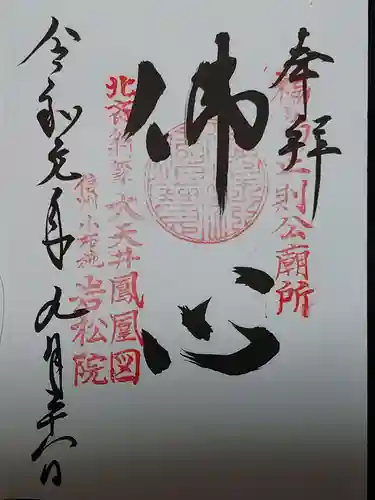 奉拝
福島正則公廟所
佛心
北斎筆
大天井鳳凰図
信州小布施
岩松院
令和元年九月廿八日